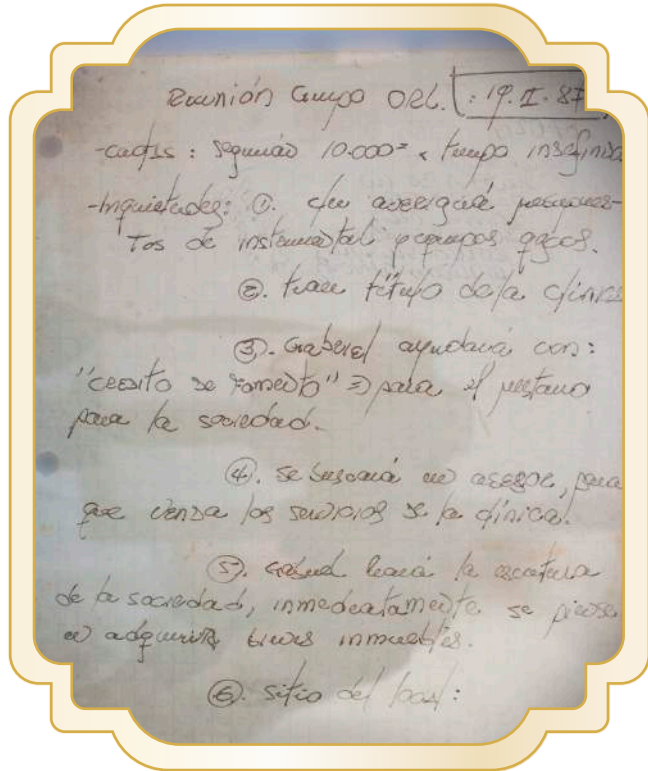 Reunión Grupo ORL. : 19.II.87
-cuotas : seguirán 10.000= x tiempo indefinido
-Inquietudes: ①. averiguará presupues-
tos de instrumental y equipos qgcos.
②. traer título de la clínica
③. Gabriel ayudará con:
"credito de Fomento" ⇒ para el prestamo
para la sociedad.-
④. se buscará un asesor, para
que venda los servicios de la clínica.
⑤. Gabriel hará la escritura
de la sociedad, inmediatamente se piense
en adquirir bienes inmuebles.
⑥. sitio del local: